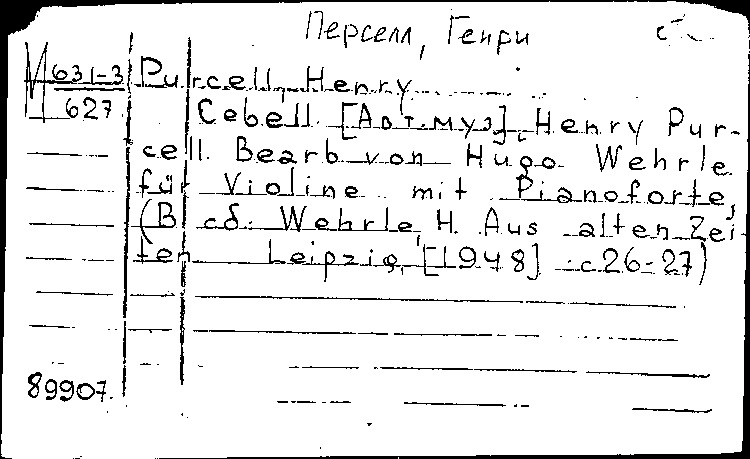 Перселл, Генри
М 631-3 Purcell, Henry
627 Cebell. [Авт. муз.], Henry Pur-
cell. Bearb von Hugo Wehrle
für Violine mit Pianoforte,
(В сб: Wehrle, H. Aus alten Zei-
ten Leipzig, [1948] с 26-27)
89907.